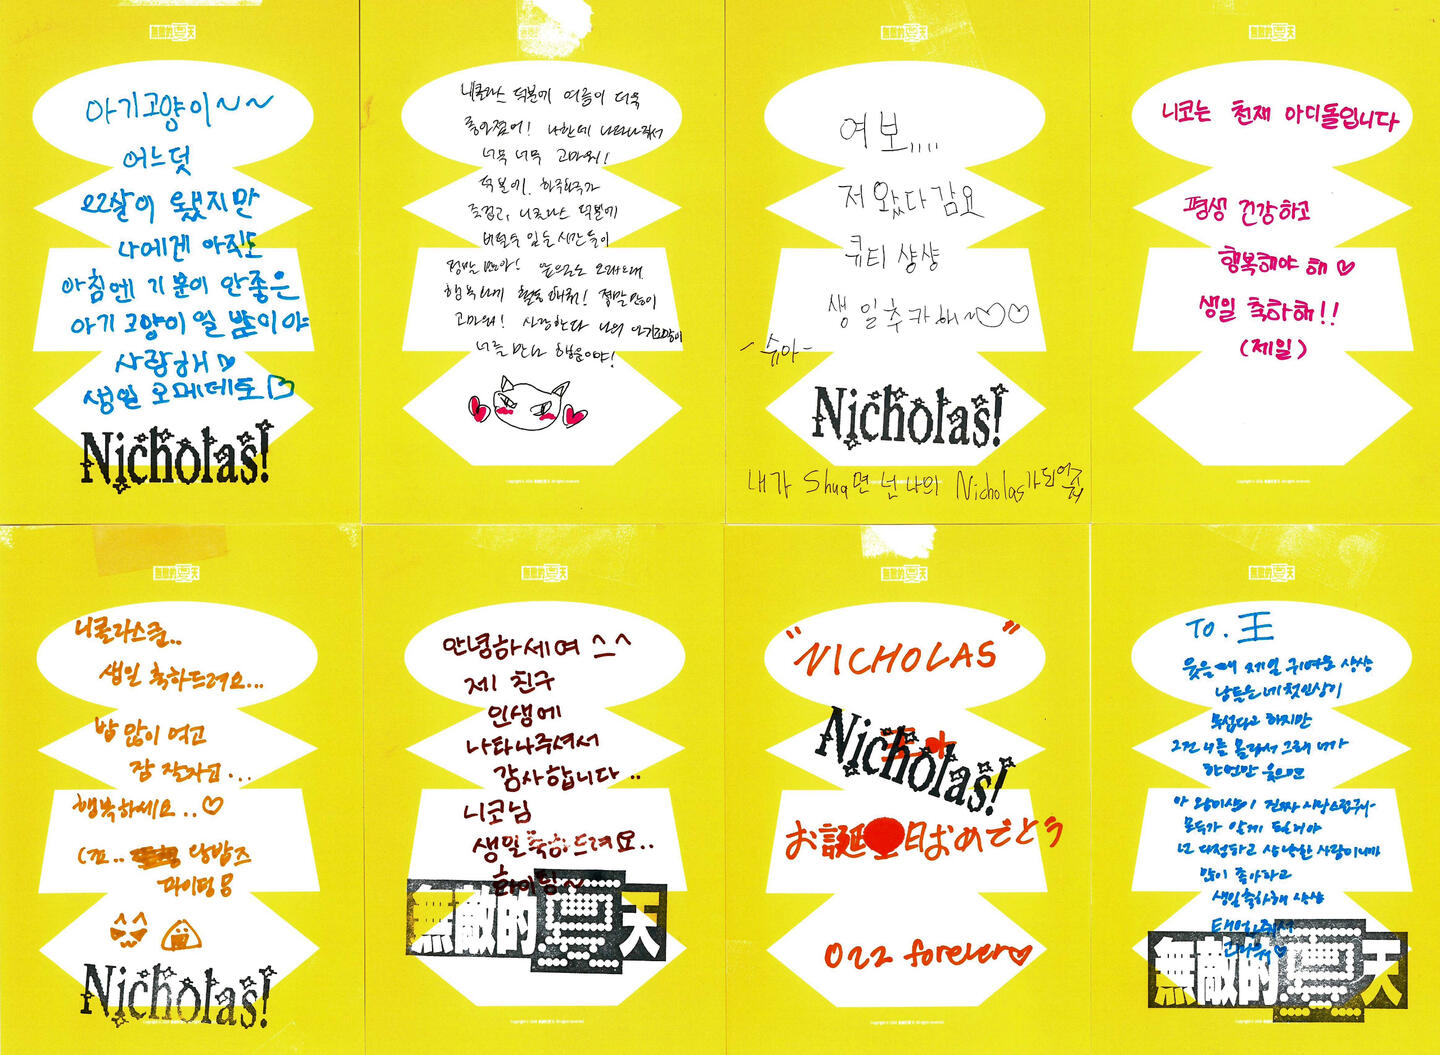 無敵的夏天
아기고양이~~
어느덧
22살이 됐지만
나에겐 아직도
아침엔 기분이 안좋은
아기고양이일 뿐이야
사랑해♡
생일 오메데토♡
Nicholas!
無敵的夏天
니콜라스 덕분에 여름이 더욱
좋아졌어! 나한테 나타나줘서
너무 너무 고마워!
덕분에 한국화가
즐겁고, 니콜라스 덕분에
버틸수 있는 시간들이
정말 많아! 앞으로도 오래오래
행복하게 활동해줘! 정말 많이
고마워! 사랑한다 나의 아기고양이
너를 만난 행운이야!
無敵的夏天
여보....
저 왔다감요
큐티 샹샹
생일추카해~♡♡
-슈아-
Nicholas!
내가 Shua면 넌 나의 Nicholas가 되어줘
無敵的夏天
니코는 천재 아이돌입니다
평생 건강하고
행복해야 해♡
생일 축하해!!
(제일)
無敵的夏天
니콜라스쿤..
생일 축하드려요...
밥 많이 먹고
잠 잘자고...
행복하세요..♡
왕밤즈
파이팅
Nicholas!
無敵的夏天
안녕하세여 ^_^
제 친구
인생에
나타나주셔서
감사합니다..
니코님
생일축하드려요..
화이팅~
無敵的夏天
無敵的夏天
"NICHOLAS"
Nicholas!
お誕生日おめでとう
022 forever♡
無敵的夏天
To. 王
웃을때 제일 귀여운 샹샹
남들은 네 첫인상이
무섭다고 하지만
그건 너를 몰라서 그래 너가
한번만 웃으면
아 왕이샹이 진짜 사랑스럽구나
모두가 알게 될거야
넌 다정하고 상냥한 사람이니까
많이 좋아하고
생일축하해 샹샹
태어나줘서
고마워♡
無敵的夏天